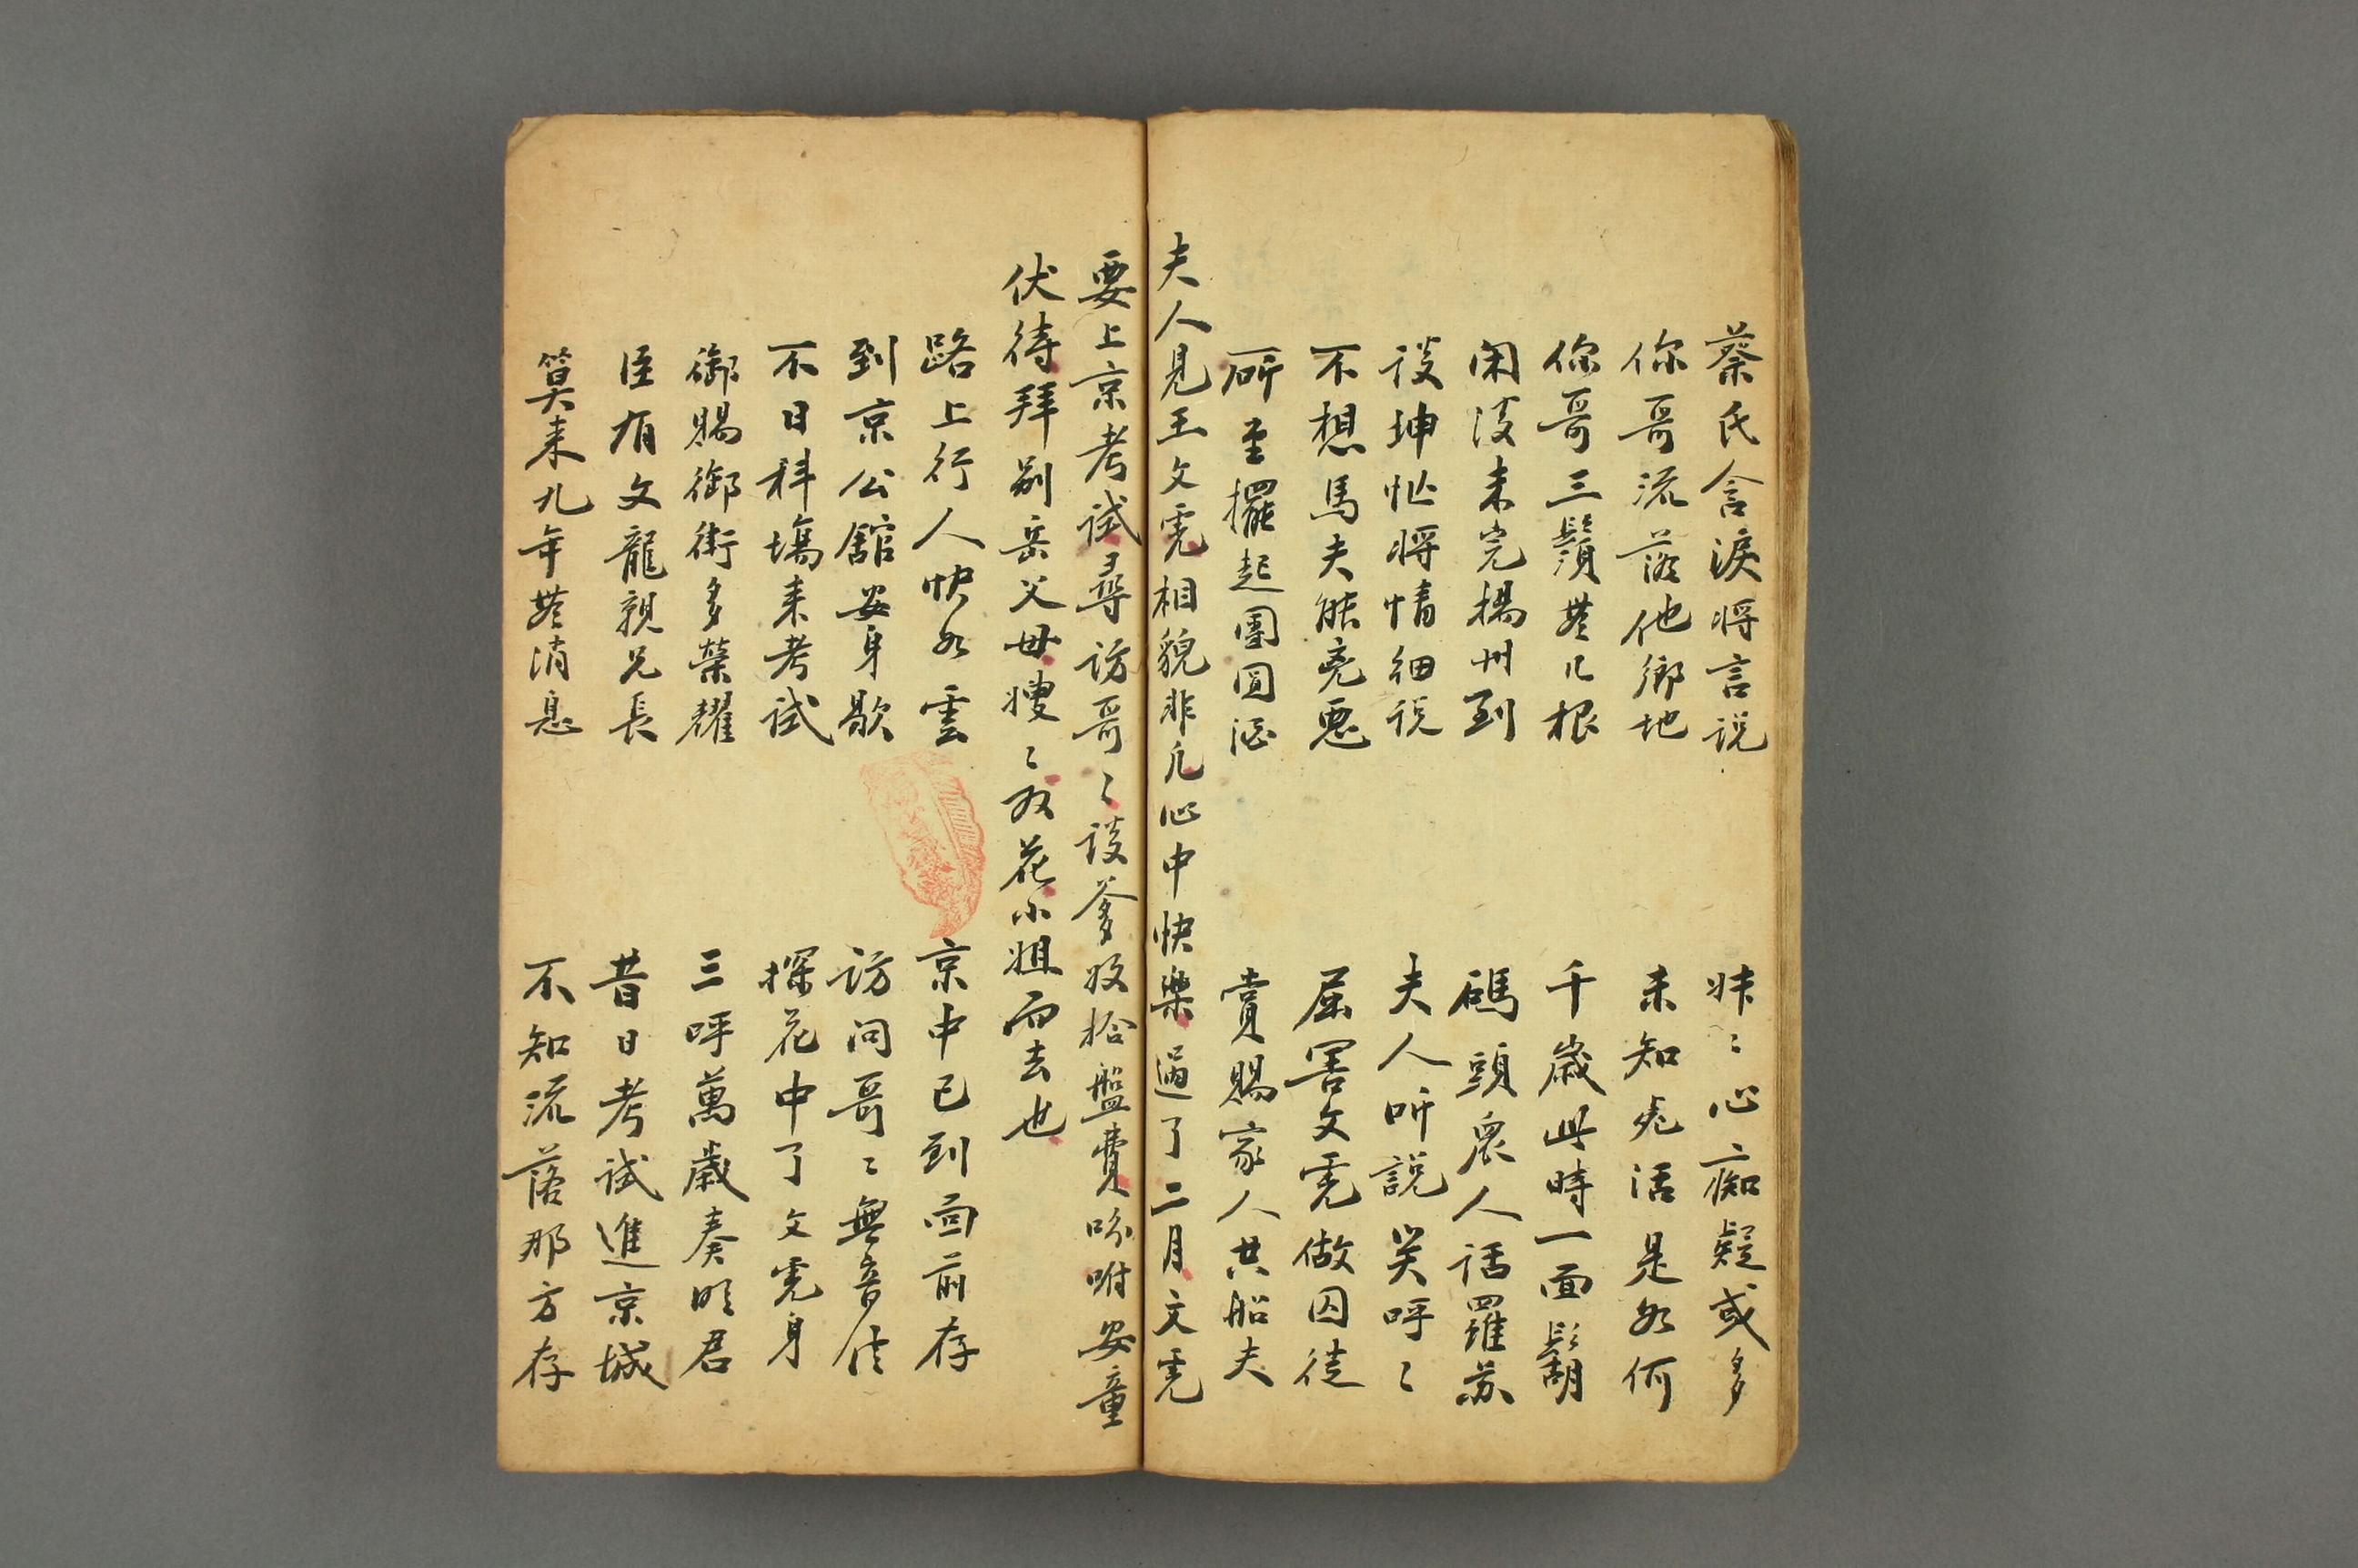 蔡氏含淚将言説 妹〻心痴疑或多
你哥流落他鄉地 未知死活是如何
你哥三鬚無几根 千歲此時一面鬍
闲談未完揚州到 碼頭衆人話羅苏
談坤忙将情细説 夫人听説哭呼〻
不想馬夫能兇惡 屈害文虎做囚徒
一听坐擺起團圓酒 賞賜家人共船夫
夫人見王文虎相貌非凡心中快樂過了二月文虎
要上京考試尋訪哥〻談爹收拾盤費吩咐安童
伏待拜别岳父母嫂〻双花小姐而去也
路上行人快如雲 京中已到面前存
到京公舘安身歇 訪问哥〻無音信
不日科塲来考試 探花中了文虎身
御賜御街多榮耀 三呼萬歲奏明君
臣有文龍親兄長 昔日考试進京城
算来九年無消息 不知流落那方存